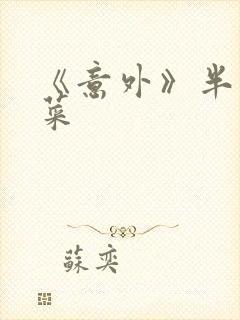 《意外》半
菜
蘇奕